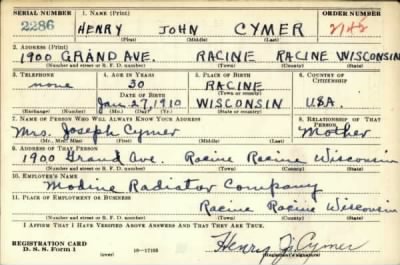 SERIAL NUMBER 1. NAME (Print) ORDER NUMBER
2286 HENRY JOHN CYMER
(First) (Middle) (Last)
2. ADDRESS (Print)
1900 GRAND AVE. RACINE RACINE WISCONSIN
(Number and street or R. F. D. number) (Town) (County) (State)
3. TELEPHONE 4. AGE IN YEARS 5. PLACE OF BIRTH 6. COUNTRY OF CITIZENSHIP
none 30 RACINE
DATE OF BIRTH (Town or county)
Jan. 27, 1910 WISCONSIN U.S.A.
(Exchange) (Number) (Mo.) (Day) (Yr.) (State or country)
7. NAME OF PERSON WHO WILL ALWAYS KNOW YOUR ADDRESS 8. RELATIONSHIP OF THAT PERSON
Mrs. Joseph Cymer Mother
(Mr., Mrs., Miss) (First) (Middle) (Last)
9. ADDRESS OF THAT PERSON
1900 Grand Ave. Racine Racine Wisconsin
(Number and street or R. F. D. number) (Town) (County) (State)
10. EMPLOYER'S NAME
Modine Radiator Company
11. PLACE OF EMPLOYMENT OR BUSINESS
Racine Racine Wisconsin
(Number and street or R. F. D. number) (Town) (County) (State)
I AFFIRM THAT I HAVE VERIFIED ABOVE ANSWERS AND THAT THEY ARE TRUE.
REGISTRATION CARD
D. S. S. Form 1 (over) Henry J. Cymer
(Registrant's signature)